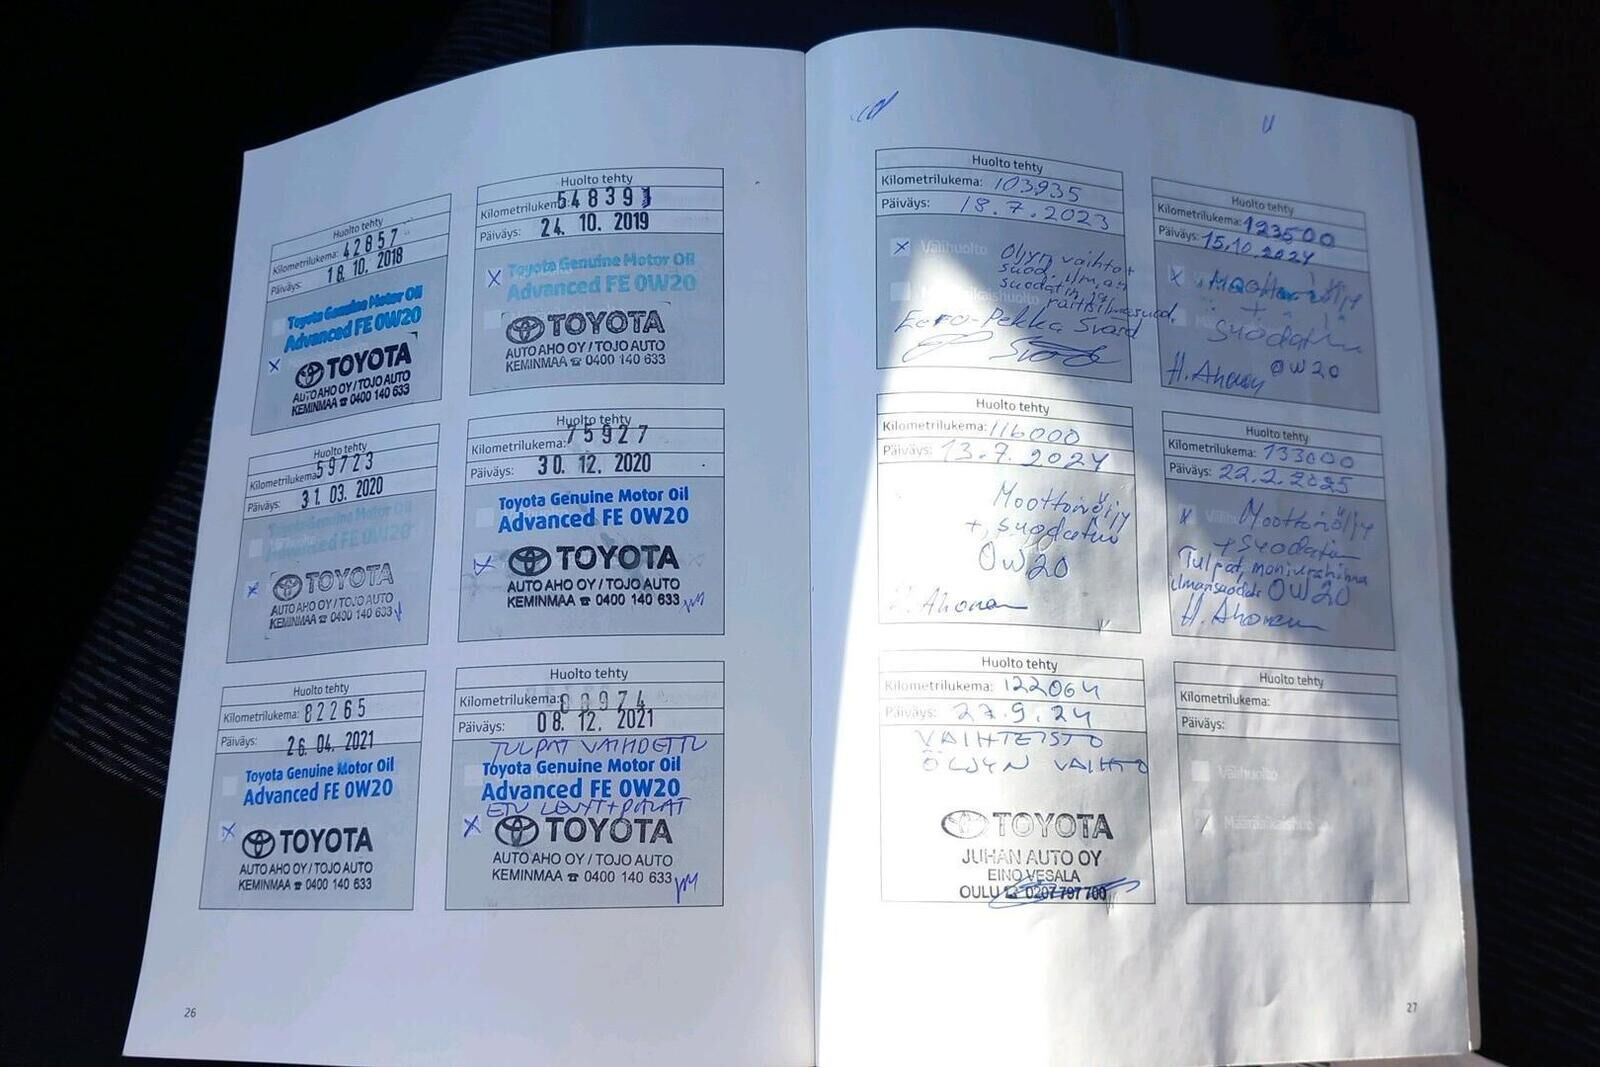 Huolto tehty
Kilometrilukema: 42857
Päiväys: 18. 10. 2018
Toyota Genuine Motor Oil
Advanced FE 0W20
X
TOYOTA
AUTO AHO OY / TOJO AUTO
KEMINMAA ☎ 0400 140 633
Huolto tehty
Kilometrilukema: 548391
Päiväys: 24. 10. 2019
X
Toyota Genuine Motor Oil
Advanced FE 0W20
TOYOTA
AUTO AHO OY / TOJO AUTO
KEMINMAA ☎ 0400 140 633
Huolto tehty
Kilometrilukema 59723
Päiväys: 31. 03. 2020
Toyota Genuine Motor Oil
Advanced FE 0W20
X
TOYOTA
AUTO AHO OY / TOJO AUTO
KEMINMAA ☎ 0400 140 633
Huolto tehty
Kilometrilukema: 75927
Päiväys: 30. 12. 2020
Toyota Genuine Motor Oil
Advanced FE 0W20
X
TOYOTA
AUTO AHO OY / TOJO AUTO
KEMINMAA ☎ 0400 140 633
Huolto tehty
Kilometrilukema: 82265
Päiväys: 26. 04. 2021
Toyota Genuine Motor Oil
Advanced FE 0W20
X
TOYOTA
AUTO AHO OY / TOJO AUTO
KEMINMAA ☎ 0400 140 633
Huolto tehty
Kilometrilukema: 88974
Päiväys: 08. 12. 2021
TULPAT VAIHDETTU
Toyota Genuine Motor Oil
Advanced FE 0W20
ETU LEVYT + PALAT
X
TOYOTA
AUTO AHO OY / TOJO AUTO
KEMINMAA ☎ 0400 140 633
26
Huolto tehty
Kilometrilukema: 103935
Päiväys: 18.7.2023
X Välihuolto
Öljyn vaihto +
suod. ilman
suodatin ja
raitisilmasuod.
Määräaikaishuolto
Eero-Pekka Svärd
Huolto tehty
Kilometrilukema: 116000
Päiväys: 13.7.2024
Moottoriöljy
+ suodatin
0W20
H. Ahonen
Huolto tehty
Kilometrilukema: 122064
Päiväys: 27.9.24
VAIHTEISTO
ÖLJYN VAIHTO
TOYOTA
JUHAN AUTO OY
EINO VESALA
OULU ☎ 0207 797 700
Huolto tehty
Kilometrilukema: 123500
Päiväys: 15.10.2024
X Moottoriöljy
+
suodatin
0W20
H. Ahonen
Huolto tehty
Kilometrilukema: 133000
Päiväys: 22.2.2025
X Moottoriöljy
+ suodatin
Tulpat, moniurahihna
ilmansuodat 0W20
H. Ahonen
Huolto tehty
Kilometrilukema:
Päiväys:
Välihuolto
Määräaikaishuolto
27